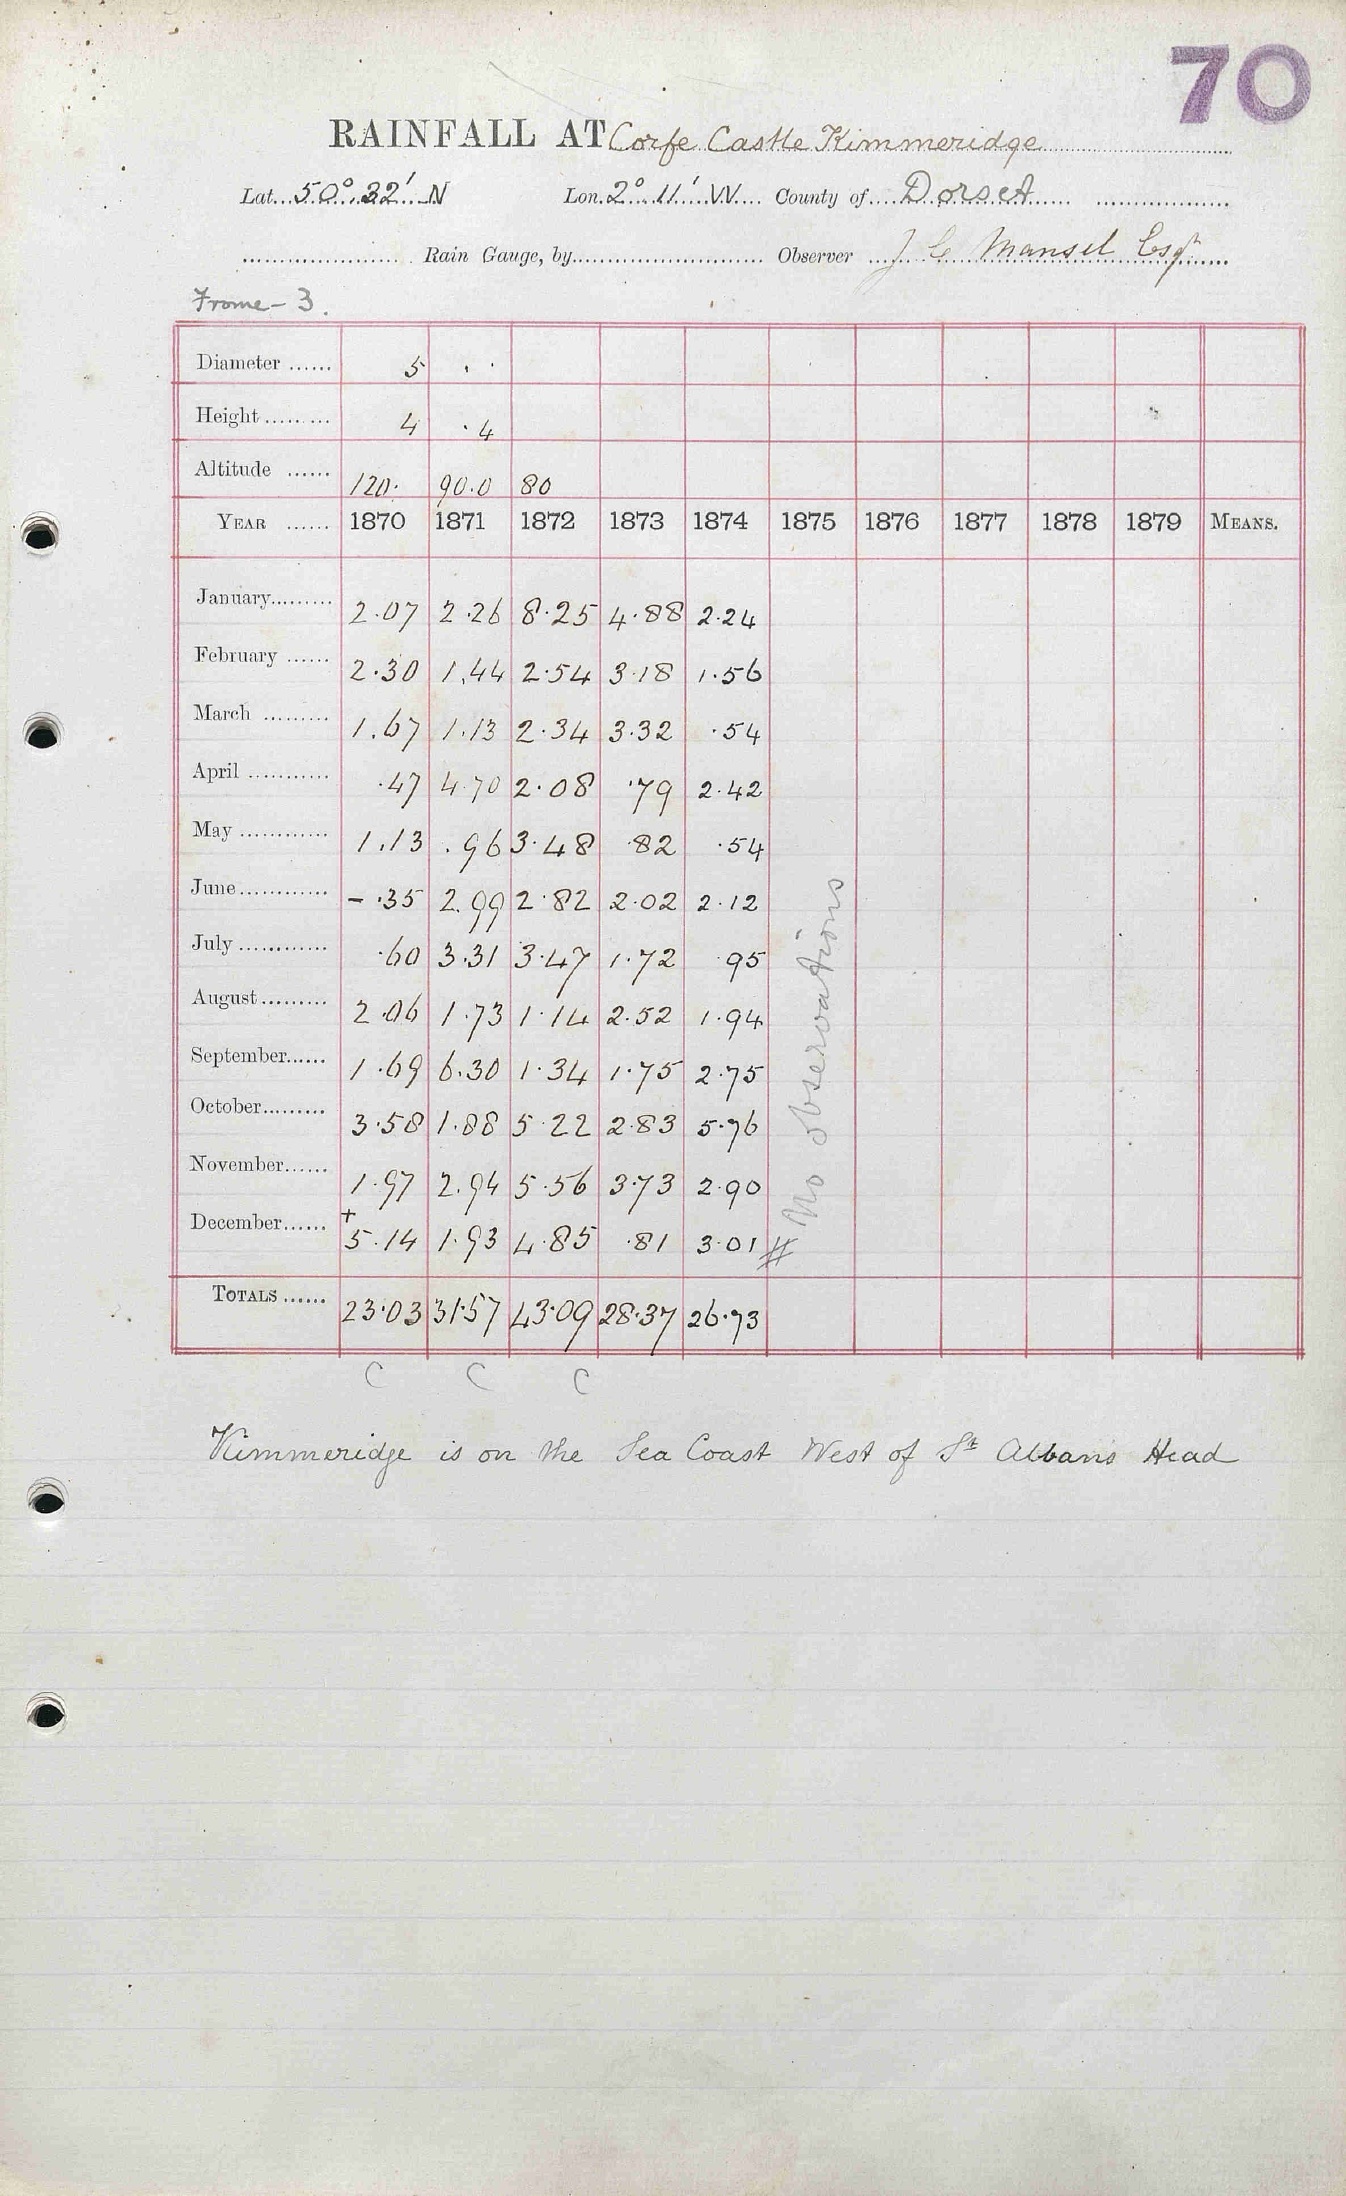 70
RAINFALL AT Corfe Castle Kimmeridge
Lat. 50° 32' N Lon. 2° 11' W County of Dorset
Rain Gauge, by Observer J C Mansel Esqr
Frome - 3.
Diameter 5 . .
Height 4 . 4
Altitude 120. 90.0 80
YEAR 1870 1871 1872 1873 1874 1875 1876 1877 1878 1879 MEANS.
January 2.07 2.26 8.25 4.88 2.24
February 2.30 1.44 2.54 3.18 1.56
March 1.67 1.13 2.34 3.32 .54
April .47 4.70 2.08 .79 2.42
May 1.13 .96 3.48 .82 .54
June - .35 2.99 2.82 2.02 2.12
July .60 3.31 3.47 1.72 .95
August 2.06 1.73 1.14 2.52 1.94
September 1.69 6.30 1.34 1.75 2.75
October 3.58 1.88 5.22 2.83 5.76
November 1.97 2.94 5.56 3.73 2.90
December + 5.14 1.93 4.85 .81 3.01 #
No observations
TOTALS 23.03 31.57 43.09 28.37 26.73
C C C
Kimmeridge is on the Sea Coast West of St Albans Head